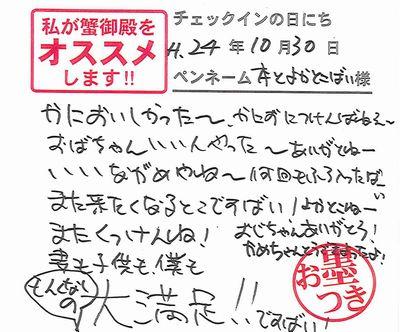 私が蟹御殿を
オススメ
します!!
チェックインの日にち
H.24年10月30日
ペンネーム よかとばい様
かにおいしかった〜 かにおにつけんばねぇ〜
おばちゃんいい人やった〜 ありがとねー
いいながめやね〜 何回もふろ入ったばい
また来たくなるとこですばい! よかとねー
またくっけんね! おじちゃんありがとう!
妻も子供も僕も かめちゃんとうばったよ!
の
大満足!!ですばい!
お墨つき